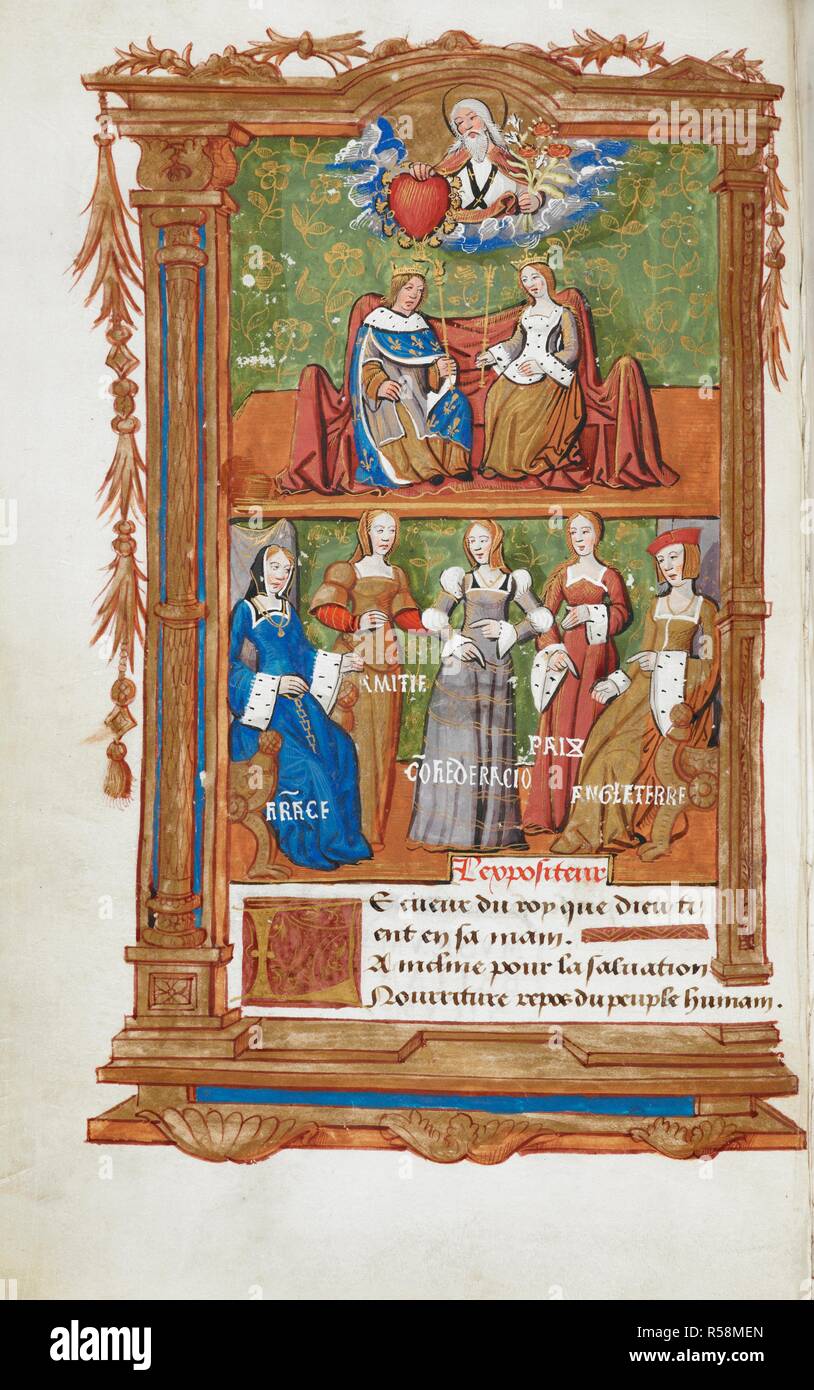 AMITIE
PAIX
CŌFEDERACIŌ
ANGLETERRE
FRĀCE
L'expositeur
LE cueur du roy que dieu ti
ent en sa main.
A incline pour la saluation
Nourriture repos du peuple humain.
a
alamy
Image ID: R58MEN
www.alamy.com